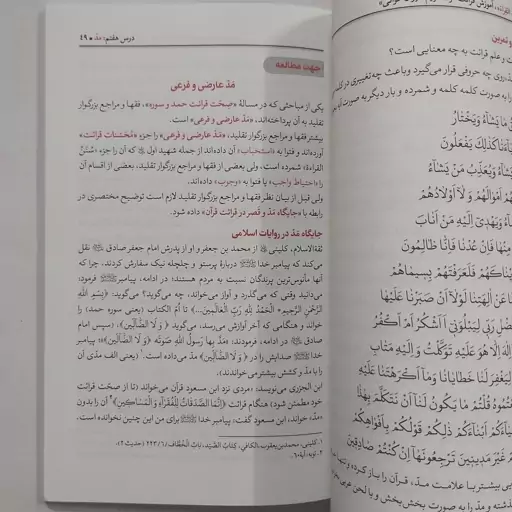 درس هفتم: مدّ ■ ۴۹
جهت مطالعه
مَدّ عارضی و فرعی
یکی از مباحثی که در مسألهٔ «صحّت قرائت حمد و سوره»، فقها و مراجع بزرگوار
تقلید به آن پرداخته‌اند، «مَدّ عارضی و فرعی» است.
بیشتر فقها و مراجع بزرگوار تقلید، «مَدّ عارضی و فرعی» را جزء «مُحسّنات قرائت»
آورده‌اند و فتوا به «استحباب» آن داده‌اند از جمله شهید اول که آن را جزء «سُنَنُ
القراءة» شمرده است، ولی بعضی از فقها و مراجع بزرگوار تقلید، بعضی از اقسام آن
را «احتیاط واجب» یا فتوا به «وجوب» داده‌اند.
ولی قبل از بیان نظر فقها و مراجع بزرگوار تقلید لازم است توضیح مختصری در
رابطه با «جایگاه مَدّ و قَصر در قرائت قرآن» داده شود.
جایگاه مَدّ در روایات اسلامی
ثقةالاسلام، کلینی از محمد بن جعفر و او از پدرش امام جعفر صادق نقل
می‌کند که پیامبر خدا دربارهٔ پرستو و چلچله نیک سفارش کردند، چرا که
آنها مأنوس‌ترین پرندگان نسبت به مردم هستند؛ در ادامه، پیامبر فرمود:
می‌دانید وقتی که می‌گذرد و آواز می‌خواند، چه می‌گوید؟ می‌گوید: ﴿بِسْمِ اللَّهِ
الرَّحْمَنِ الرَّحِيمِ * الْحَمْدُ لِلَّهِ رَبِّ الْعَالَمِينَ...﴾ تا أُمّ الکتاب (یعنی سوره حمد) را
خواند و هنگامی که آخر آوازش می‌رسد، می‌گوید ﴿وَ لَا الضَّالِّينَ﴾، سپس امام
صادق در ادامه، فرمودند: «مَدَّ بِها رَسولُ اللّهِ صَوتَهُ ﴿وَ لَا الضَّالِّينَ﴾»؛ پیامبر
خدا صدایش را در ﴿وَ لَا الضَّالِّينَ﴾ مدّ می‌داده است.۱ (یعنی الف مدّی آن
را با مدّ و کشش بیشتر می‌خواندند).
ابن الجزری می‌نویسد: «مردی نزد ابن مسعود قرآن می‌خواند (تا از صحّت قرائت
خود مطمئن شود) هنگام قرائت ﴿إِنَّمَا الصَّدَقَاتُ لِلْفُقَرَاءِ وَ الْمَسَاكِينِ﴾۲ آن را بدون
«مدّ» خواند، ابن مسعود گفت: پیامبر خدا برای من این چنین نخوانده است.
۱. کلینی، محمدبن‌یعقوب، الکافی، کتابُ الصَّید، بابُ الخُطّاف، ۲۴۳/۶ (حدیث ۲).
۲. توبه، آیهٔ ۶۰.
و تمرین
و علم قرائت به چه معنایی است؟
مدّ، روی چه حروفی قرار می‌گیرد و باعث چه تغییری در کلمه
را به صورت کلمه کلمه و شمرده و بار دیگر به صورت
مَا يَشَاءُ وَيَخْتَارُ
كَذَلِكَ يَفْعَلُونَ
وَيُعَذِّبُ مَنْ يَشَاءُ
أَمْوَالُهُمْ وَلَا أَوْلَادُهُمْ
وَيَهْدِي إِلَيْهِ مَنْ أَنَابَ
مِنْهَا فَإِنْ عُدْنَا فَإِنَّا ظَالِمُونَ
فَلَعَرَفْتَهُمْ بِسِيمَاهُمْ
عَنْ آلِهَتِنَا لَوْلَا أَنْ صَبَرْنَا عَلَيْهَا
فَضْلِ رَبِّي لِيَبْلُوَنِي أَأَشْكُرُ أَمْ أَكْفُرُ
إِلَهَ إِلَّا هُوَ عَلَيْهِ تَوَكَّلْتُ وَإِلَيْهِ مَتَابِ
لِيَغْفِرَ لَنَا خَطَايَانَا وَمَا أَكْرَهْتَنَا عَلَيْهِ
قُلْتُمْ مَا يَكُونُ لَنَا أَنْ نَتَكَلَّمَ بِهَذَا
أَبْنَاءَكُمْ ذَلِكُمْ قَوْلُكُمْ بِأَفْوَاهِكُمْ
غَيْرَ مَدِينِينَ تَرْجِعُونَهَا إِنْ كُنْتُمْ صَادِقِينَ
بیشتر با علامت مدّ، قرآن را باز کرده و
و مدّ را به صورت بخش بخش و با لحن عربی